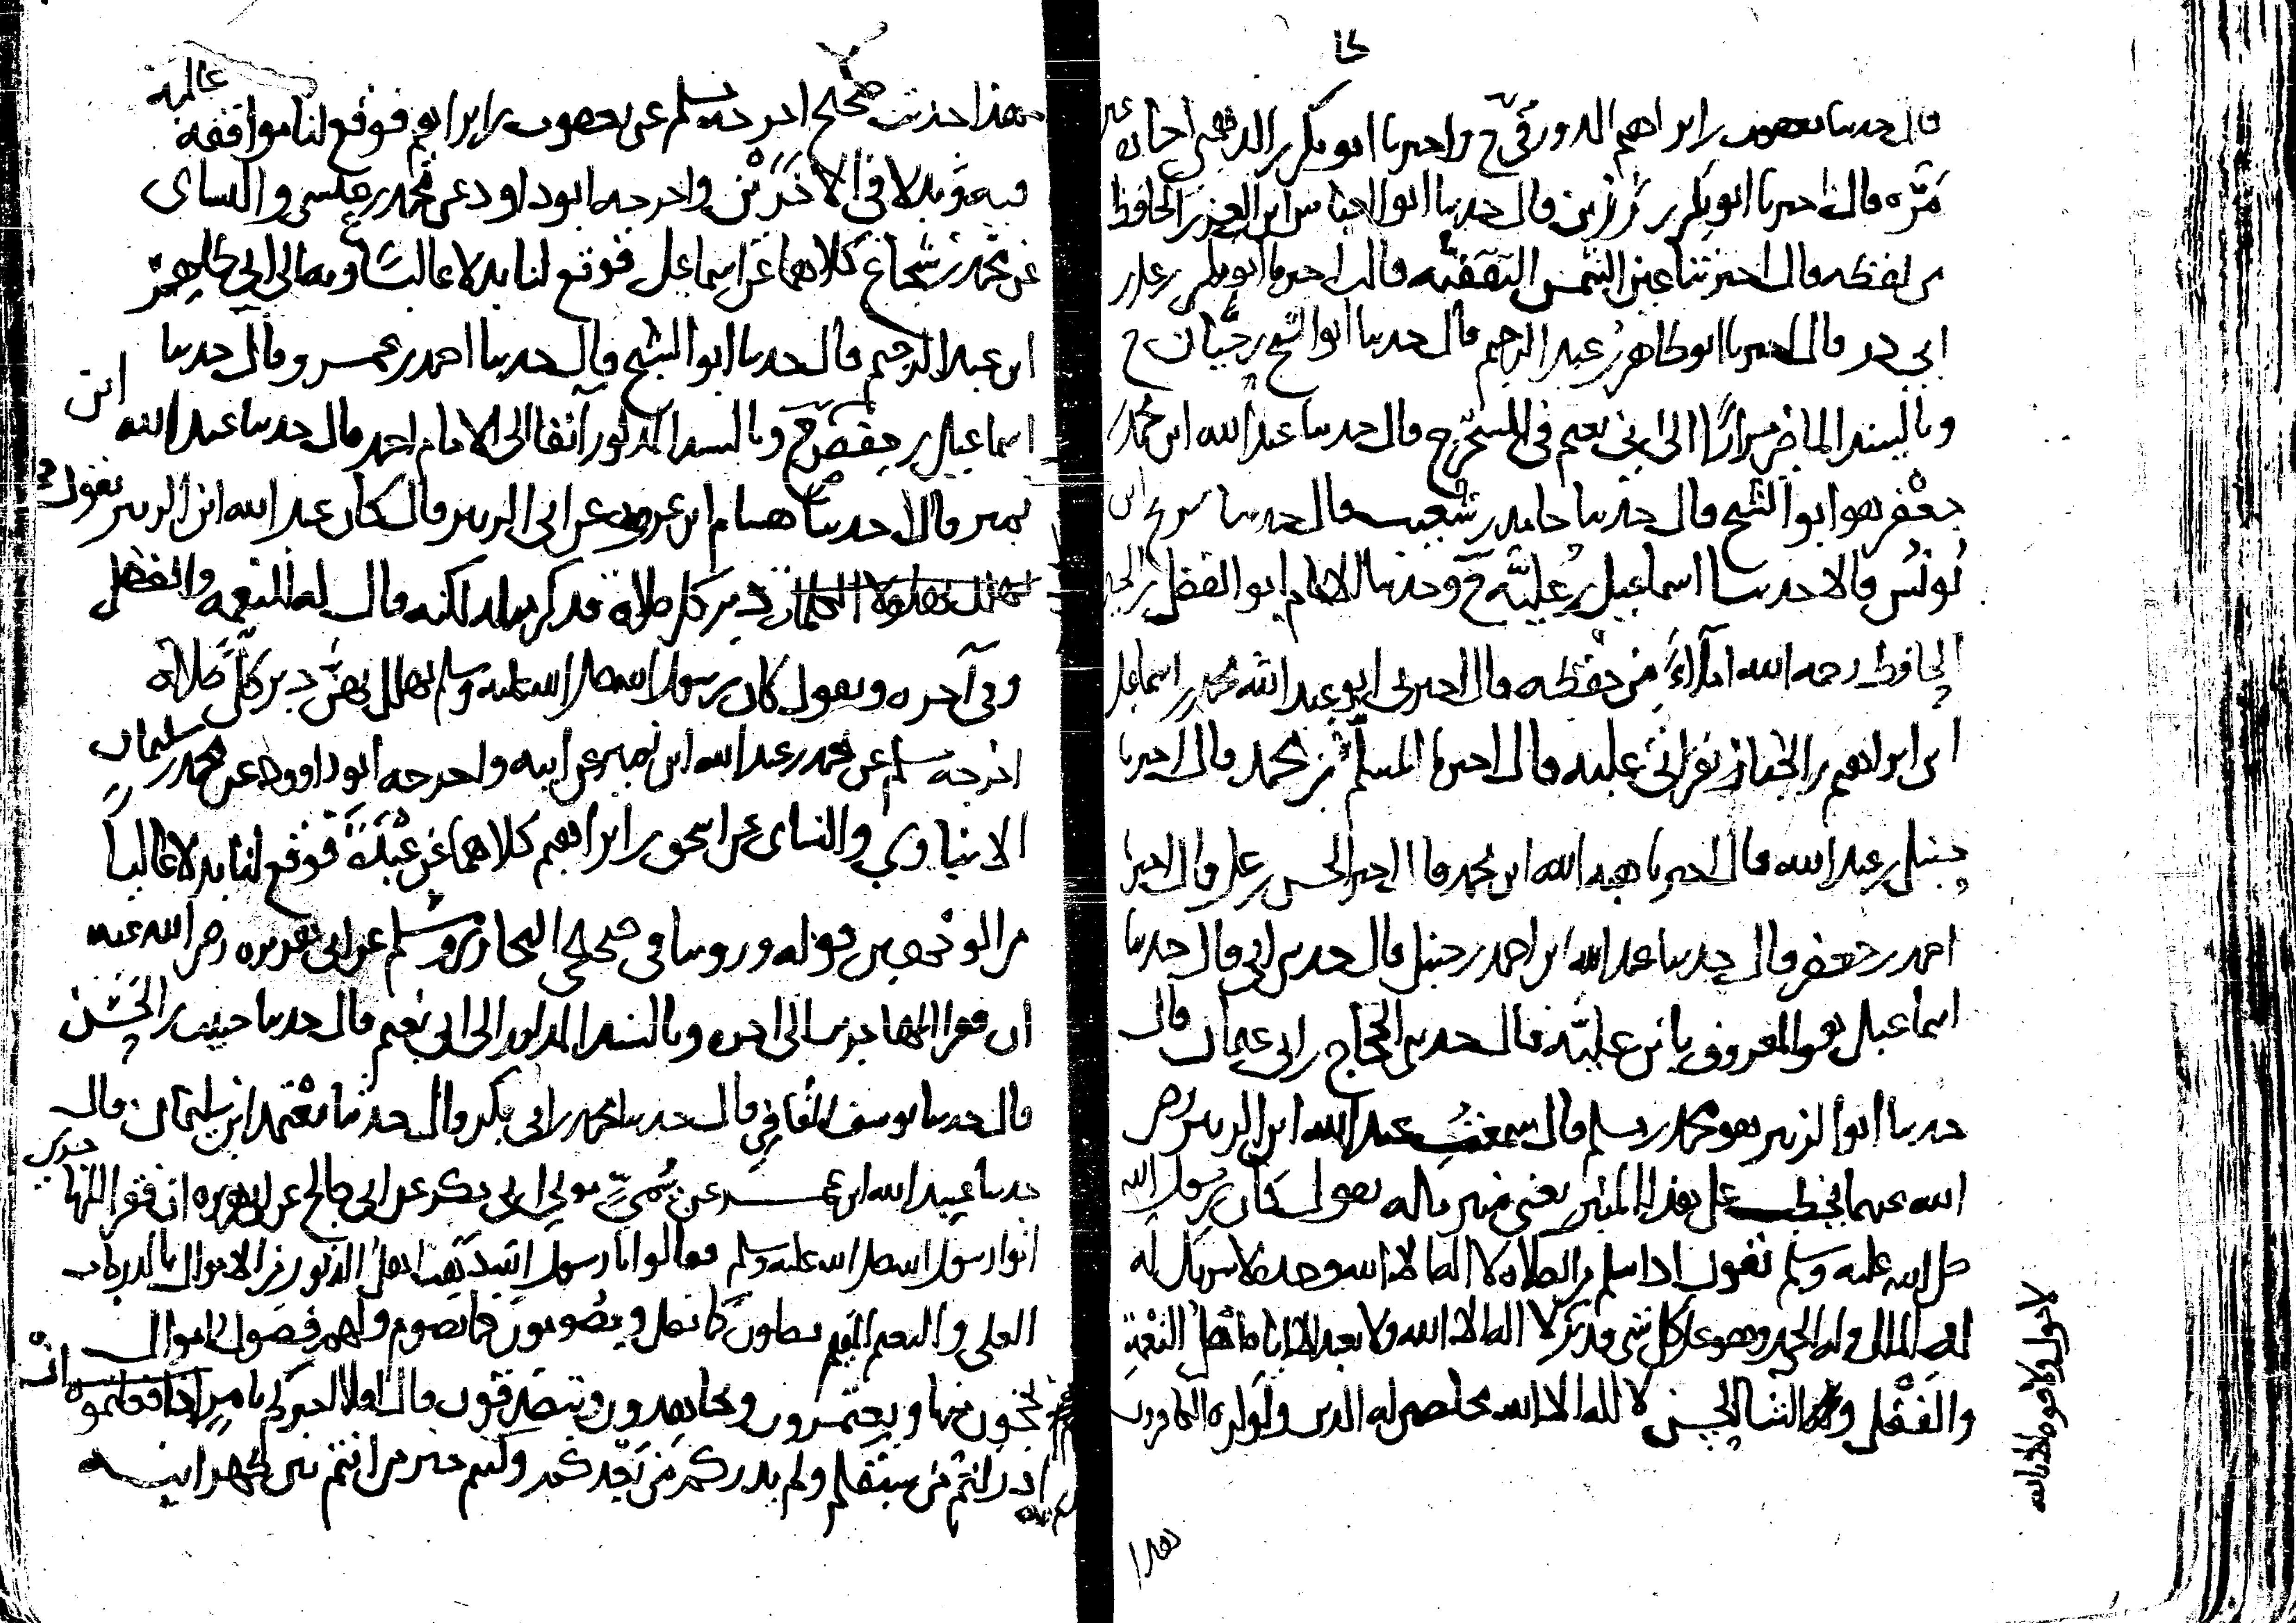 قال حدثنا يعقوب بن ابراهيم الدورقي ح واخبرنا ابو بكر بن الذهبي اجازة غير
مرة قال اخبرنا ابو بكر بن قال حدثنا ابو العباس ابن العز الحافظ
من لفظه قال اخبرتنا عين الشمس الثقفية قالت اخبرنا ابو بكر بن علي بن
ابي ذر قال اخبرنا ابو طاهر بن عبد الرحيم قال حدثنا ابو الشيخ بن حيان ح
وبالسند الماضي مرارا الى ابي نعيم في المستخرج قال حدثنا عبد الله ابن محمد بن
جعفر هو ابو الشيخ قال حدثنا حامد بن شعيب قال حدثنا سريج ابن
يونس قالا حدثنا اسماعيل بن علية ح وحدثنا الامام ابو الفضل بن
الحافظ رحمه الله املاء من حفظه قال اخبرني ابو عبد الله محمد بن اسماعيل
ابن ابراهيم بن الخباز بقراتي عليه قال اخبرنا المسلم بن محمد قال اخبرنا
حنبل بن عبد الله قال اخبرنا هبة الله ابن محمد قال اخبرنا الحسن بن علي قال اخبرنا
احمد بن جعفر قال حدثنا عبد الله ابن احمد بن حنبل قال حدثني ابي قال حدثنا
اسماعيل هو المعروف بابن علية قال حدثني الحجاج بن ابي عثمان قال
حدثنا ابو الزبير هو محمد بن مسلم قال سمعت عبد الله ابن الزبير رضي
الله عنهما يخطب على هذا المنبر يعني منبر مكة يقول كان رسول الله
صلى الله عليه وسلم يقول اذا سلم من الصلاة لا اله الا الله وحده لا شريك له
له الملك وله الحمد وهو على كل شي قدير لا اله الا الله ولا نعبد الا اياه اهل النعمة
والفضل والثنا الحسن لا اله الا الله مخلصين له الدين ولو كره الكافرون
لا حول ولا قوة الا بالله
هذا
هذا حديث صحيح اخرجه مسلم عن يعقوب بن ابراهيم فوقع لنا موافقة عالية
فيه وبدلا في الاخرتين واخرجه ابو داود عن محمد بن عيسى والنساي
عن محمد بن شجاع كلاهما عن اسماعيل فوقع لنا بدلا عاليا وبه الى ابي طاهر
ابن عبد الرحيم قال حدثنا ابو الشيخ قال حدثنا احمد بن عمر وقال حدثنا
اسماعيل بن حفص ح وبالسند المذكور آنفا الى الامام احمد قال حدثنا عبد الله ابن
نمير قالا حدثنا هشام ابن عروة عن ابي الزبير قال كان عبد الله ابن الزبير يقول
دبر كل صلاة فذكر مثله لكنه قال له النعمة والفضل
وفي آخره ويقول كان رسول الله صلى الله عليه وسلم يهلل بهن دبر كل صلاة
اخرجه مسلم عن محمد بن عبد الله ابن نمير عن ابيه واخرجه ابو داوود عن محمد بن سليمان
الانباري والنساي عن اسحق بن ابراهيم كلاهما عن عبدة فوقع لنا بدلا عاليا
من الوجهين قوله وروينا في صحيحي البخاري ومسلم عن ابي هريرة رضي الله عنه
ان فقرا المهاجرين الى اخره وبالسند المذكور الى ابي نعيم قال حدثنا حبيب بن الحسن
قال حدثنا يوسف القاضي قال حدثنا محمد بن ابي بكر قال حدثنا معتمر ابن سليمان قال
حدثنا عبيد الله ابن عمر عن سمي مولى ابي بكر عن ابي صالح عن ابي هريرة ان فقرا المهاجرين
اتوا رسول الله صلى الله عليه وسلم فقالوا يا رسول الله ذهب اهل الدثور من الاموال بالدرجات
العلى والنعيم المقيم يصلون كما نصلي ويصومون كما نصوم ولهم فضول اموال
يحجون منها ويعتمرون ويجاهدون ويتصدقون قال افلا اخبركم بامر اذا فعلتموه
ادركتم من سبقكم ولم يدرككم من بعدكم وكنتم خير من انتم بين ظهرانيه